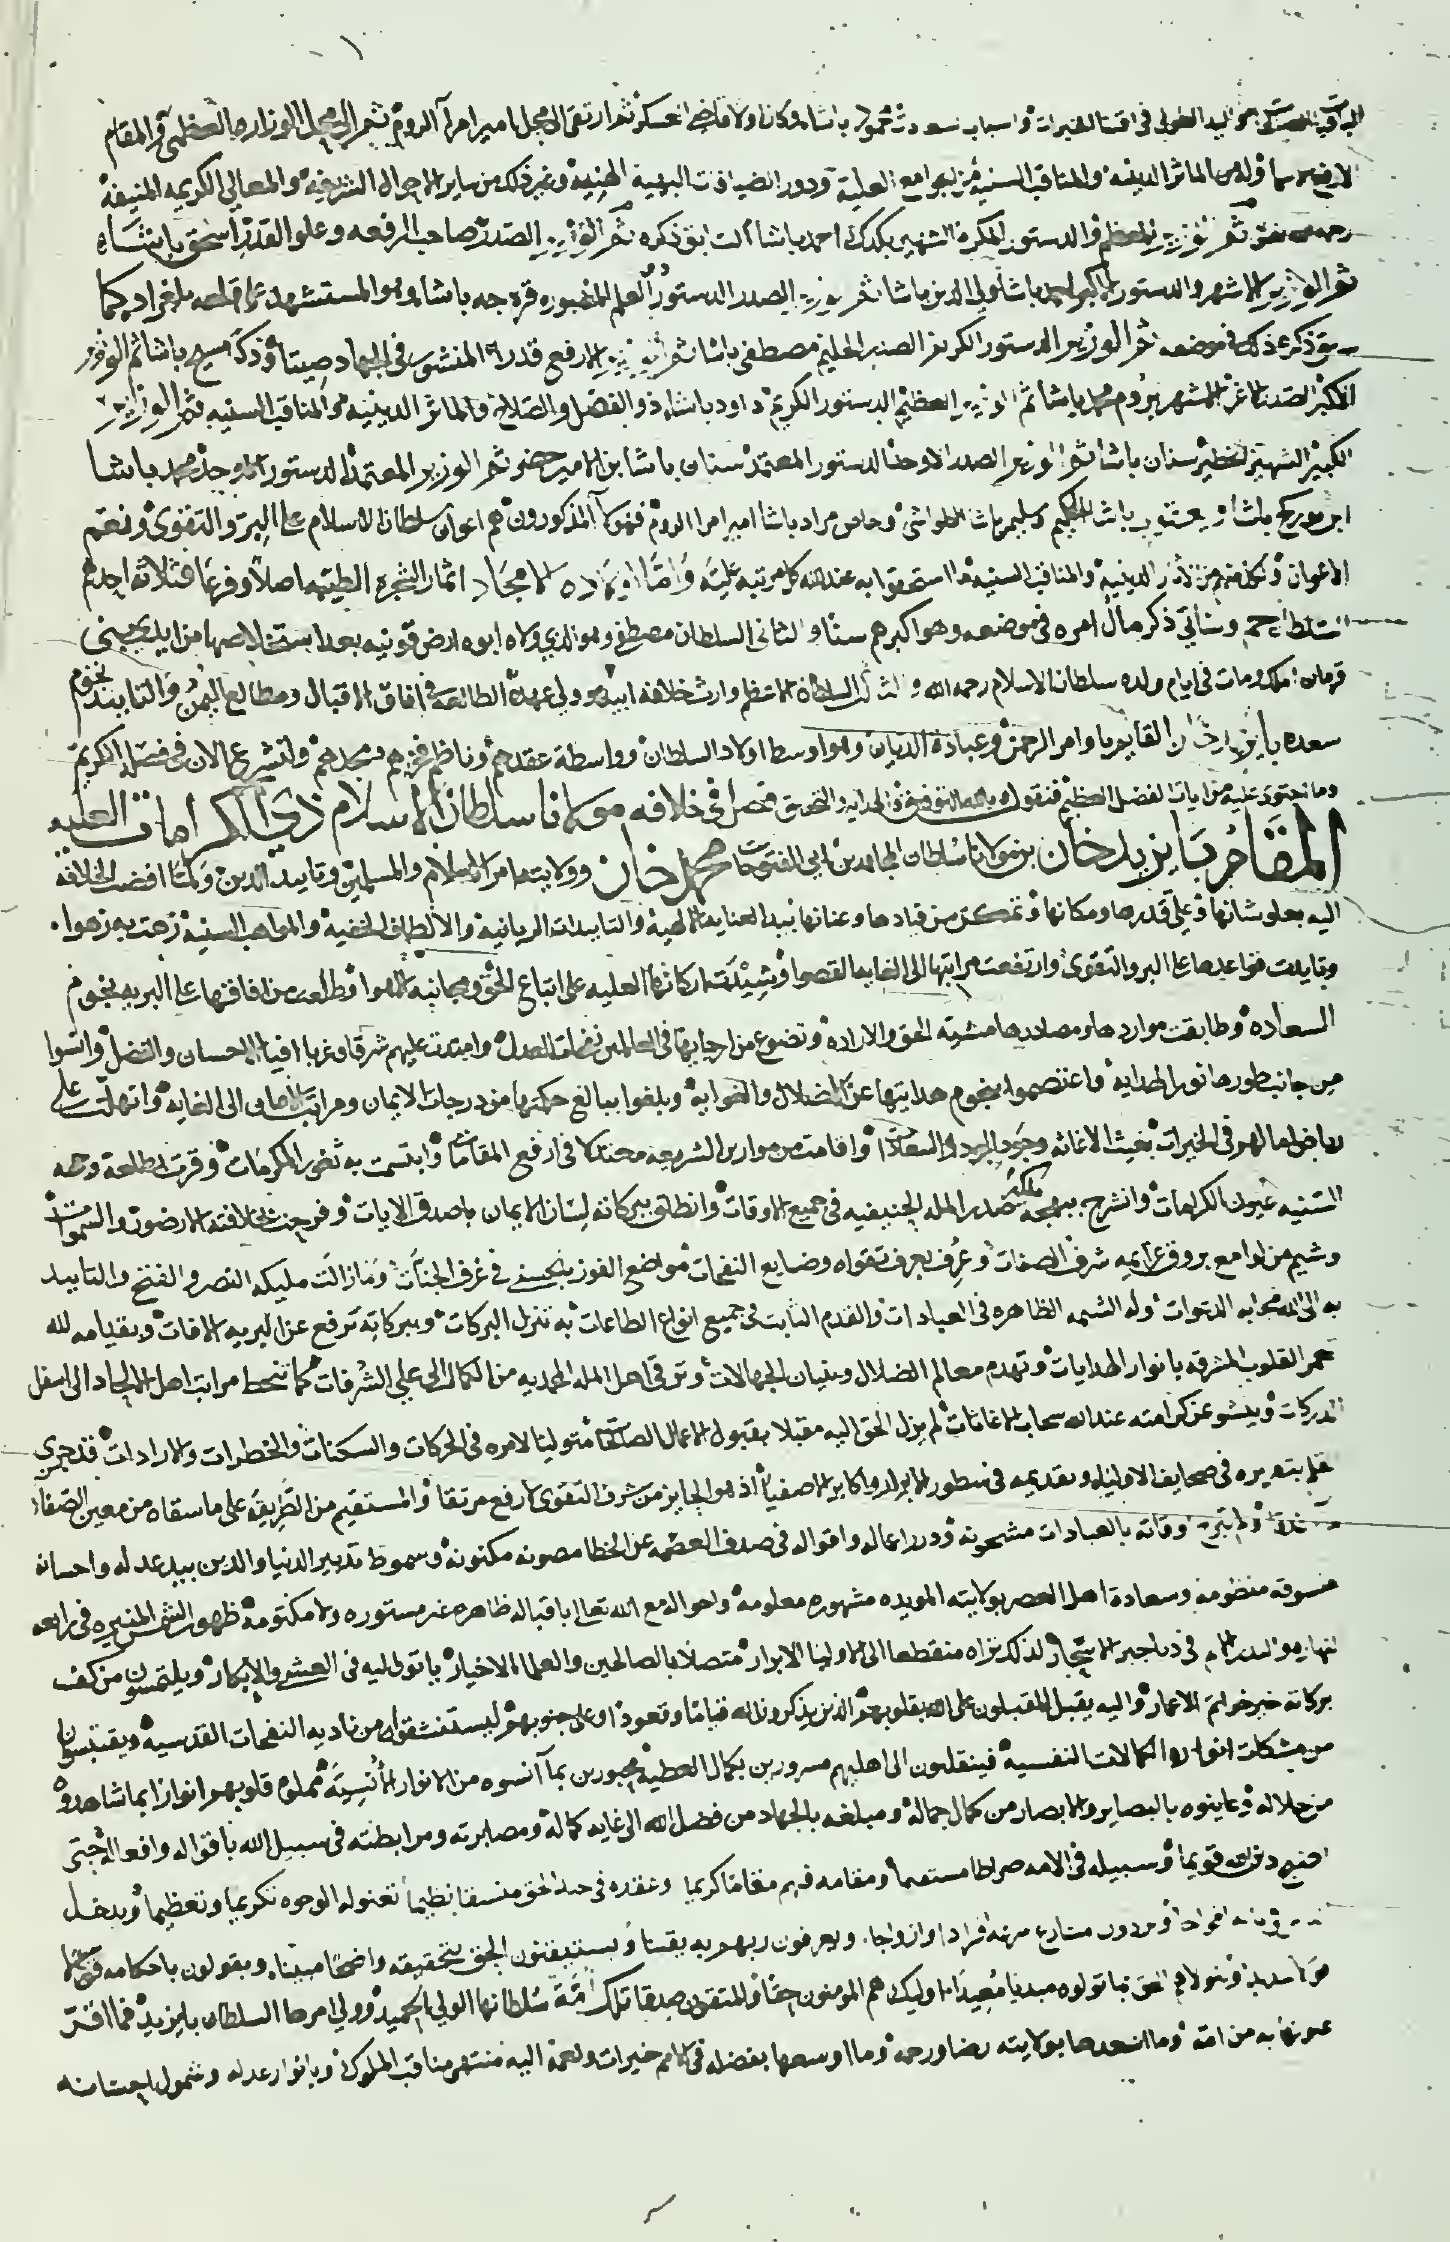 اليد الطولى في اقتنا الخيرات واسباب سعدت محمود باشا وكان اولا قاضي العسكر ثم ارتقى الى محل امير امرآ الروم ثم الى محل الوزاره العظمى والمقام
الارفع الماثر الدينيه والمناقب السنيه من الجوامع العليه ودور الضيافات البهيه الهنيه وغير ذلك من ساير الاحوال الشريفه والمعالي الكريمه المنيفه
رحمه ثم الوزير المعظم والدستور المكرم الشهير بكدك احمد باشا السابق ذكره ثم الوزير الصدر صاحب الرفعه وعلو القدر اسحق باشا
ثم الوزير الاشهر والدستور الاكبر باشا ولي الدين باشا ثم الوزير الصدر الدستور العلم قره جه باشا وهو المستشهد بلغراد كما
سبق ذكر ذلك في موضعه ثم الوزير الدستور الكريم الصدر الحليم مصطفى باشا ثم الوزير الارفع قدرا المنشور في الجهاد صيتا وذكرا مسيح باشا ثم الوزير
الاكبر الصدر الاعز الاشهر بروم محمد باشا ثم الوزير العظيم الدستور الكريم داود باشا ذو الفضل والصلاح والماثر الدينيه والمناقب السنيه ثم الوزير
الكبير الشهير الخطير سنان باشا ثم الوزير الصدر الاوحد الدستور المعتمد سنان باشا بن الامير خضر ثم الوزير المعتمد الدستور الاوحد محمد باشا
ابن باشا ويعقوب باشا الحكيم باشا الطواشي وخاص مراد باشا امير امرا الروم فهولآ المذكورون هم اعوان سلطان الاسلام على البر والتقوى ونعم
الاعوان ولكل منهم من الماثر الدينيه والمناقب السنيه ما استحقوا به عند الله كل مرتبه عليه وَامّا اولاده الامجاد اثمار الشجره الطيبه اصلا وفرعا فثلاثه احدهم
السلطان جم وسياتي ذكر مآل امره في موضعه وهو اكبرهم سنا والثاني السلطان مصطفى وهو الذي ولاه ابوه ارض قونيه بعد استخلاصها من ايدي بني
قرمان الملك ومات في ايام والده سلطان الاسلام رحمه الله والثالث السلطان الاعظم وارث خلافه ابيه وولي عهده الطالعه في افاق الاقبال ومطالع اليمن والتاييد نجوم
سعده بايزيد خان القايم باوامر الرحمن وعبادة الديان وهو اوسط اولاد السلطان وواسطة عقدهم وناظم فخرهم ومجدهم ولنشرع الان في فضله الكريم
وما تحتوى عليه من ايات الفضل العظيم فنقول وبالله التوفيق والهدايه والتحقيق فصل في خلافه مولانا سلطان الاسلام ذي الكرامات العليه
المقام بايزيد خان بن مولانا سلطان المجاهدين ابي الفتوحات محمد خان وولايته امر الاسلام والمسلمين وتاييد الدين ولما افضت الخلافة
اليه بعلو شانها وعلي قدرها ومكانها وتمكن من قيادها وعنانها بيد العنايه الالهيه والتاييدات الربانيه والالطاف الخفيه والمواهب السنيه زهت به زهوا
وتايدت قواعدها على البر والتقوى وارتفعت مراتبها الى الغايه القصوا وشيدت اركانها العليه على اتباع الحق ومجانبه الهوا وطلعت من افاقها على البريه نجوم
السعاده وطابقت مواردها ومصادرها مشيه الحق والاراده وتضوع من ارجايها في العالمين نفحات العدل وامتدت عليهم شرقا وغربا افيا الاحسان والفضل وانسوا
من جانب طورها نور الهدايه واعتصموا بنجوم هدايتها عن الضلال والغوايه وبلغوا ببالغ حكمتها من درجات الايمان ومراتب الاماني الى الغايه وانهلت على
رياض امالهم في الخيرات بغيث الاغاثه وجود الجود السعادات واقامت من موازين الشريعه معتدلا في ارفع المقامات وابتسمت به ثغور المكرمات وقرت بطلعة وجهه
السنيه عيون الكرامات وانشرح ببهجه ملكه صدر المله الحنيفيه في جميع الاوقات وانطلق ببركاته لسان الايمان باصدق الايات وفرحت بخلافته الارضون والسموات
وشيم من لوامع بروق عزايمه شرف الصفات وعرف بعرف تقواه وضايع النفحات مواضع الفوز بالحسنى في غرف الجنات وما زالت مليكه النصر والفتح والتاييد
به الى الله مجابه الدعوات وله الشيمه الظاهره في العبادات والقدم الثابت في جميع انواع الطاعات به تنزل البركات وببركاته ترفع عن البريه الافات وبقيامه لله
تعمر القلوب المشرقه بانوار الهدايات وتهدم معالم الضلال وبنيان الجهالات وترقى اهل المله المحمديه من الكمال الى علي الشرفات كما تنحط مراتب اهل الالحاد الى اسفل
الدركات وينشو عن كرامته عند الله سحاب الاغاثات لم يزل الحق اليه مقبلا بقبول الاعمال الصالحات متوليا لامره في الحركات والسكنات والخطرات والارادات قد جرى
في صحايف الاوليا وتقديمه في سطور الابرار واكابر الاصفيا اذ هو الحايز من شرف التقوى ارفع مرتقا والمستقيم من الطريقه على ما سقاه من معين الصفا
ولم تبرح اوقاته بالعبادات مشحونه ودرر اعماله واقواله في صدف العصمه عن الخطا مصونه مكنونه وسموط تدبير الدنيا والدين بيد عدله واحسانه
منسوقه منظومه وسعادة اهل العصر بولايته المويده مشهوره معلومه واحواله مع الله تعالى باقباله ظاهره غير مستوره ولا مكتومه ظهور الشمس المنيره في رابعه
النهار والبدر التام في دياجير الاسحار لذلك تراه منقطعا الى الاوليا الابرار متصلا بالصالحين والعلما الاخيار ياتون اليه في العشي والابكار ويلتمسون من كف
بركاته خير خواتم الاعمار واليه يقبل المقبلون على الله بقلوبهم الذين يذكرون الله قياما وقعودا وعلى جنوبهم ليستنشقوا من ناديه النفحات القدسيه ويقتبسون
من مشكات انواره الكمالات النفسيه فينقلبون الى اهليهم مسرورين بكمال العطيه محبورين بما آنسوه من الانوار الانسيه مملوه قلوبهم انوارا بما شاهدوه
من جلاله وعاينوه بالبصاير والابصار من كمال جماله ومبلغه بالجهاد من فضل الله الى غايه كماله ومصابرته ومرابطته في سبيل الله باقواله وافعاله حتى
اصبح دين الله قويما وسبيله في الامه صراطا مستقيما ومقامه فيهم مقاما كريما وعقده في جيد الحق منسقا نظيما تعنوله الوجوه تكريما وتعظيما ويدخل
افواجا ويردون مشارع افرادا وازواجا ويعرفون ربهم به يقينا ويستيقنون الحق بتحقيقه واضحا مبينا ويقولون باحكامه
سديدا الحق بما تولوه مبديا معيدا اوليك هم المومنون حقا والمتقون صدقا تلك امة سلطانها الولي الحميد وولي امرها السلطان بايزيد فما
به من امة وما اسعدها بولايته رضا ورحمه وما اوسعها بفضله في الامم خيرات ونعمة اليه منتهى مناقب الملوك وبانوار عدله وشمول احسانه